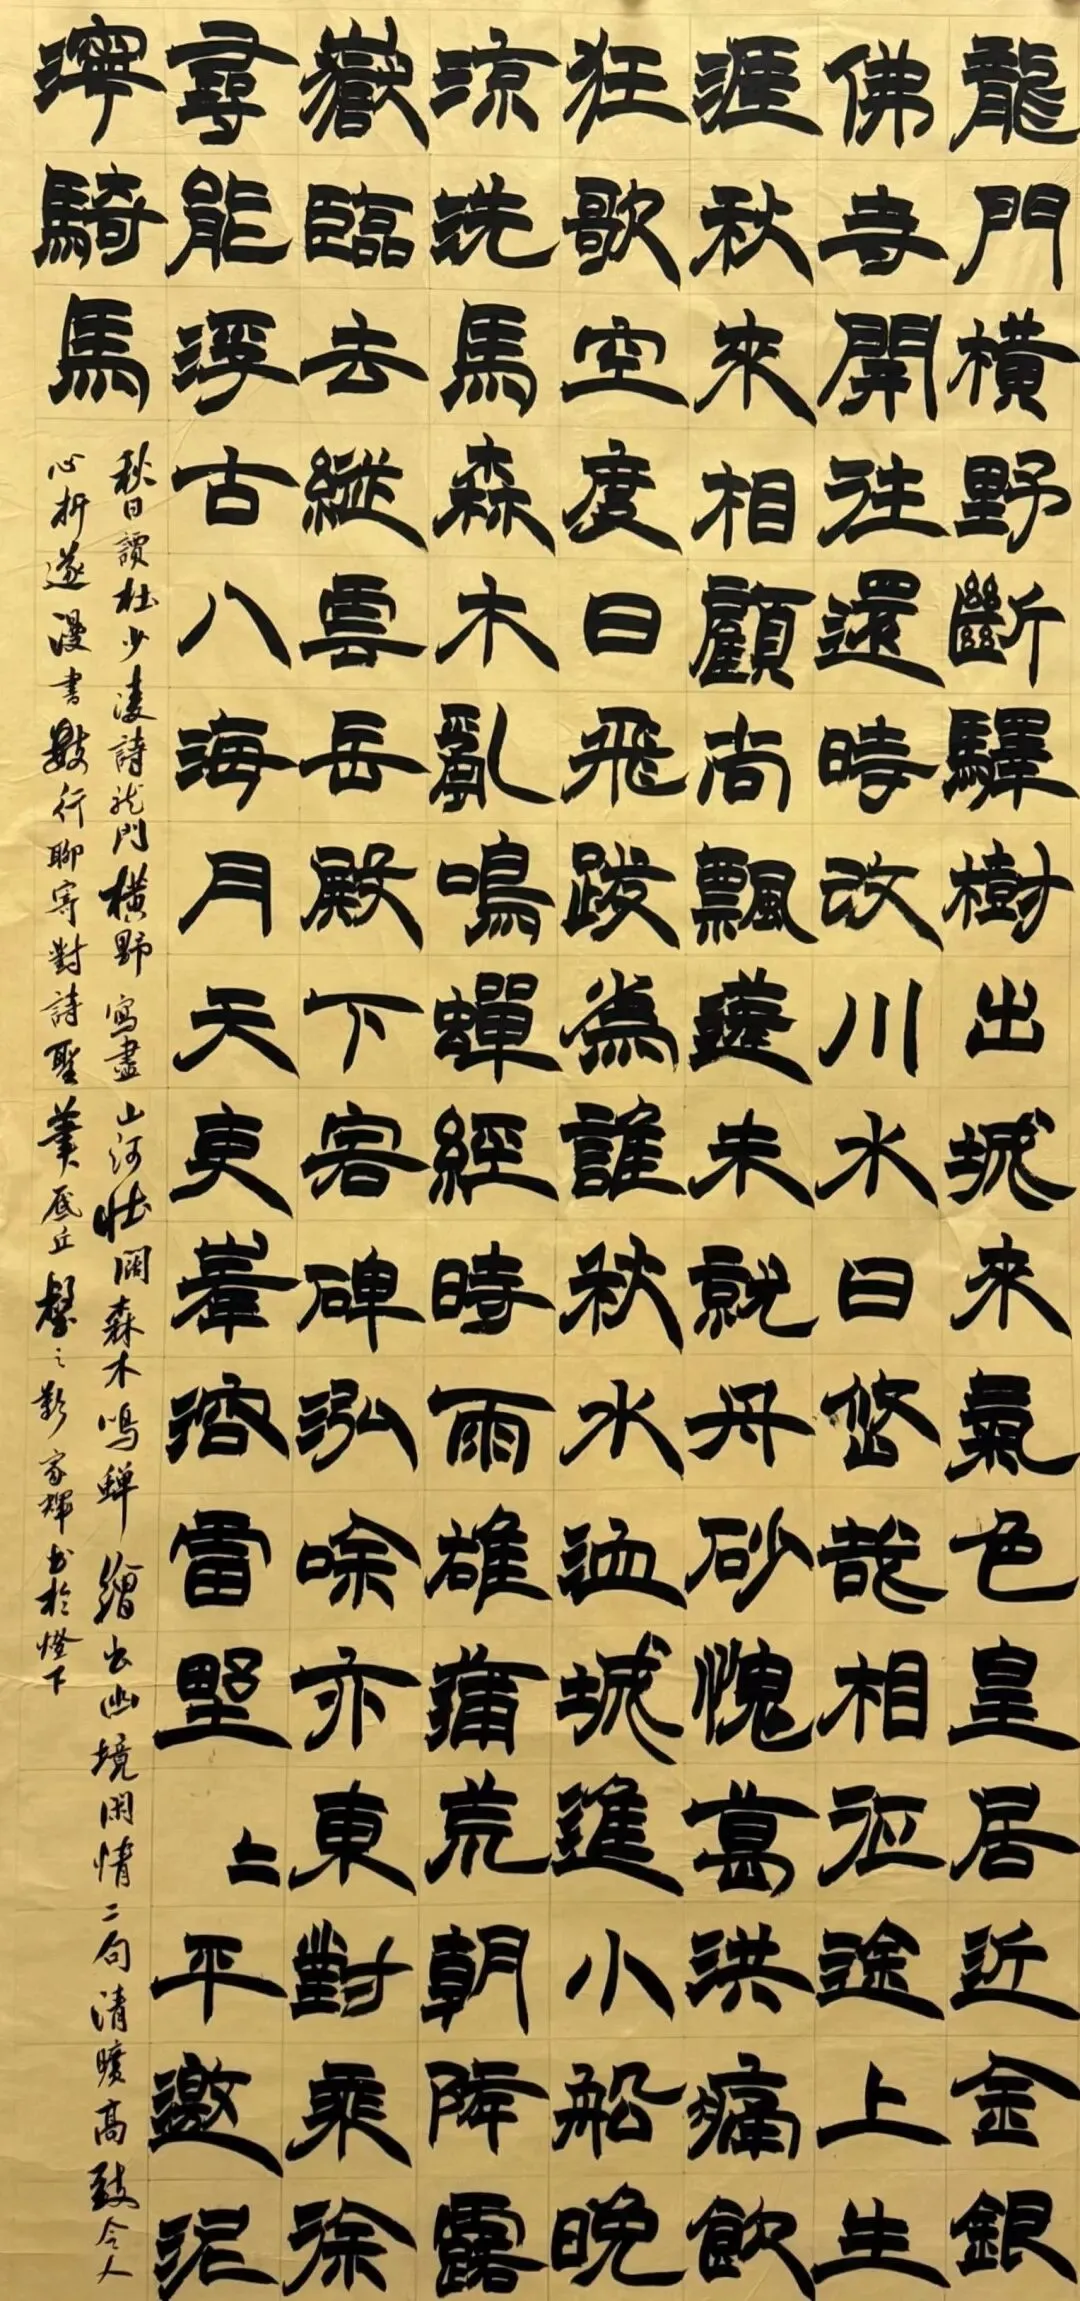 龍門橫野斷驛樹出城來氣色皇居近金銀
佛寺開往還時改川水日悠哉相征途上生
涯秋來相顧尚飄蓬未就丹砂愧葛洪痛飲
狂歌空度日飛跋為誰秋水洫城進小船晚
涼洗馬森木亂鳴蟬經時雨雄蒲荒朝降露
嶽臨去縱雲岳殿下客碑泓唫亦東對乘徐
尋能浮古八海月天峯溶雷墅平邀泥
濘騎馬
秋日讀杜少凌詩龍門橫野寫盡山河壯闊森木鳴蟬繪出幽境閑情二句清曠高致令人
心折遂漫書數行聊寄對詩聖筆底丘壑之歎家輝書於燈下